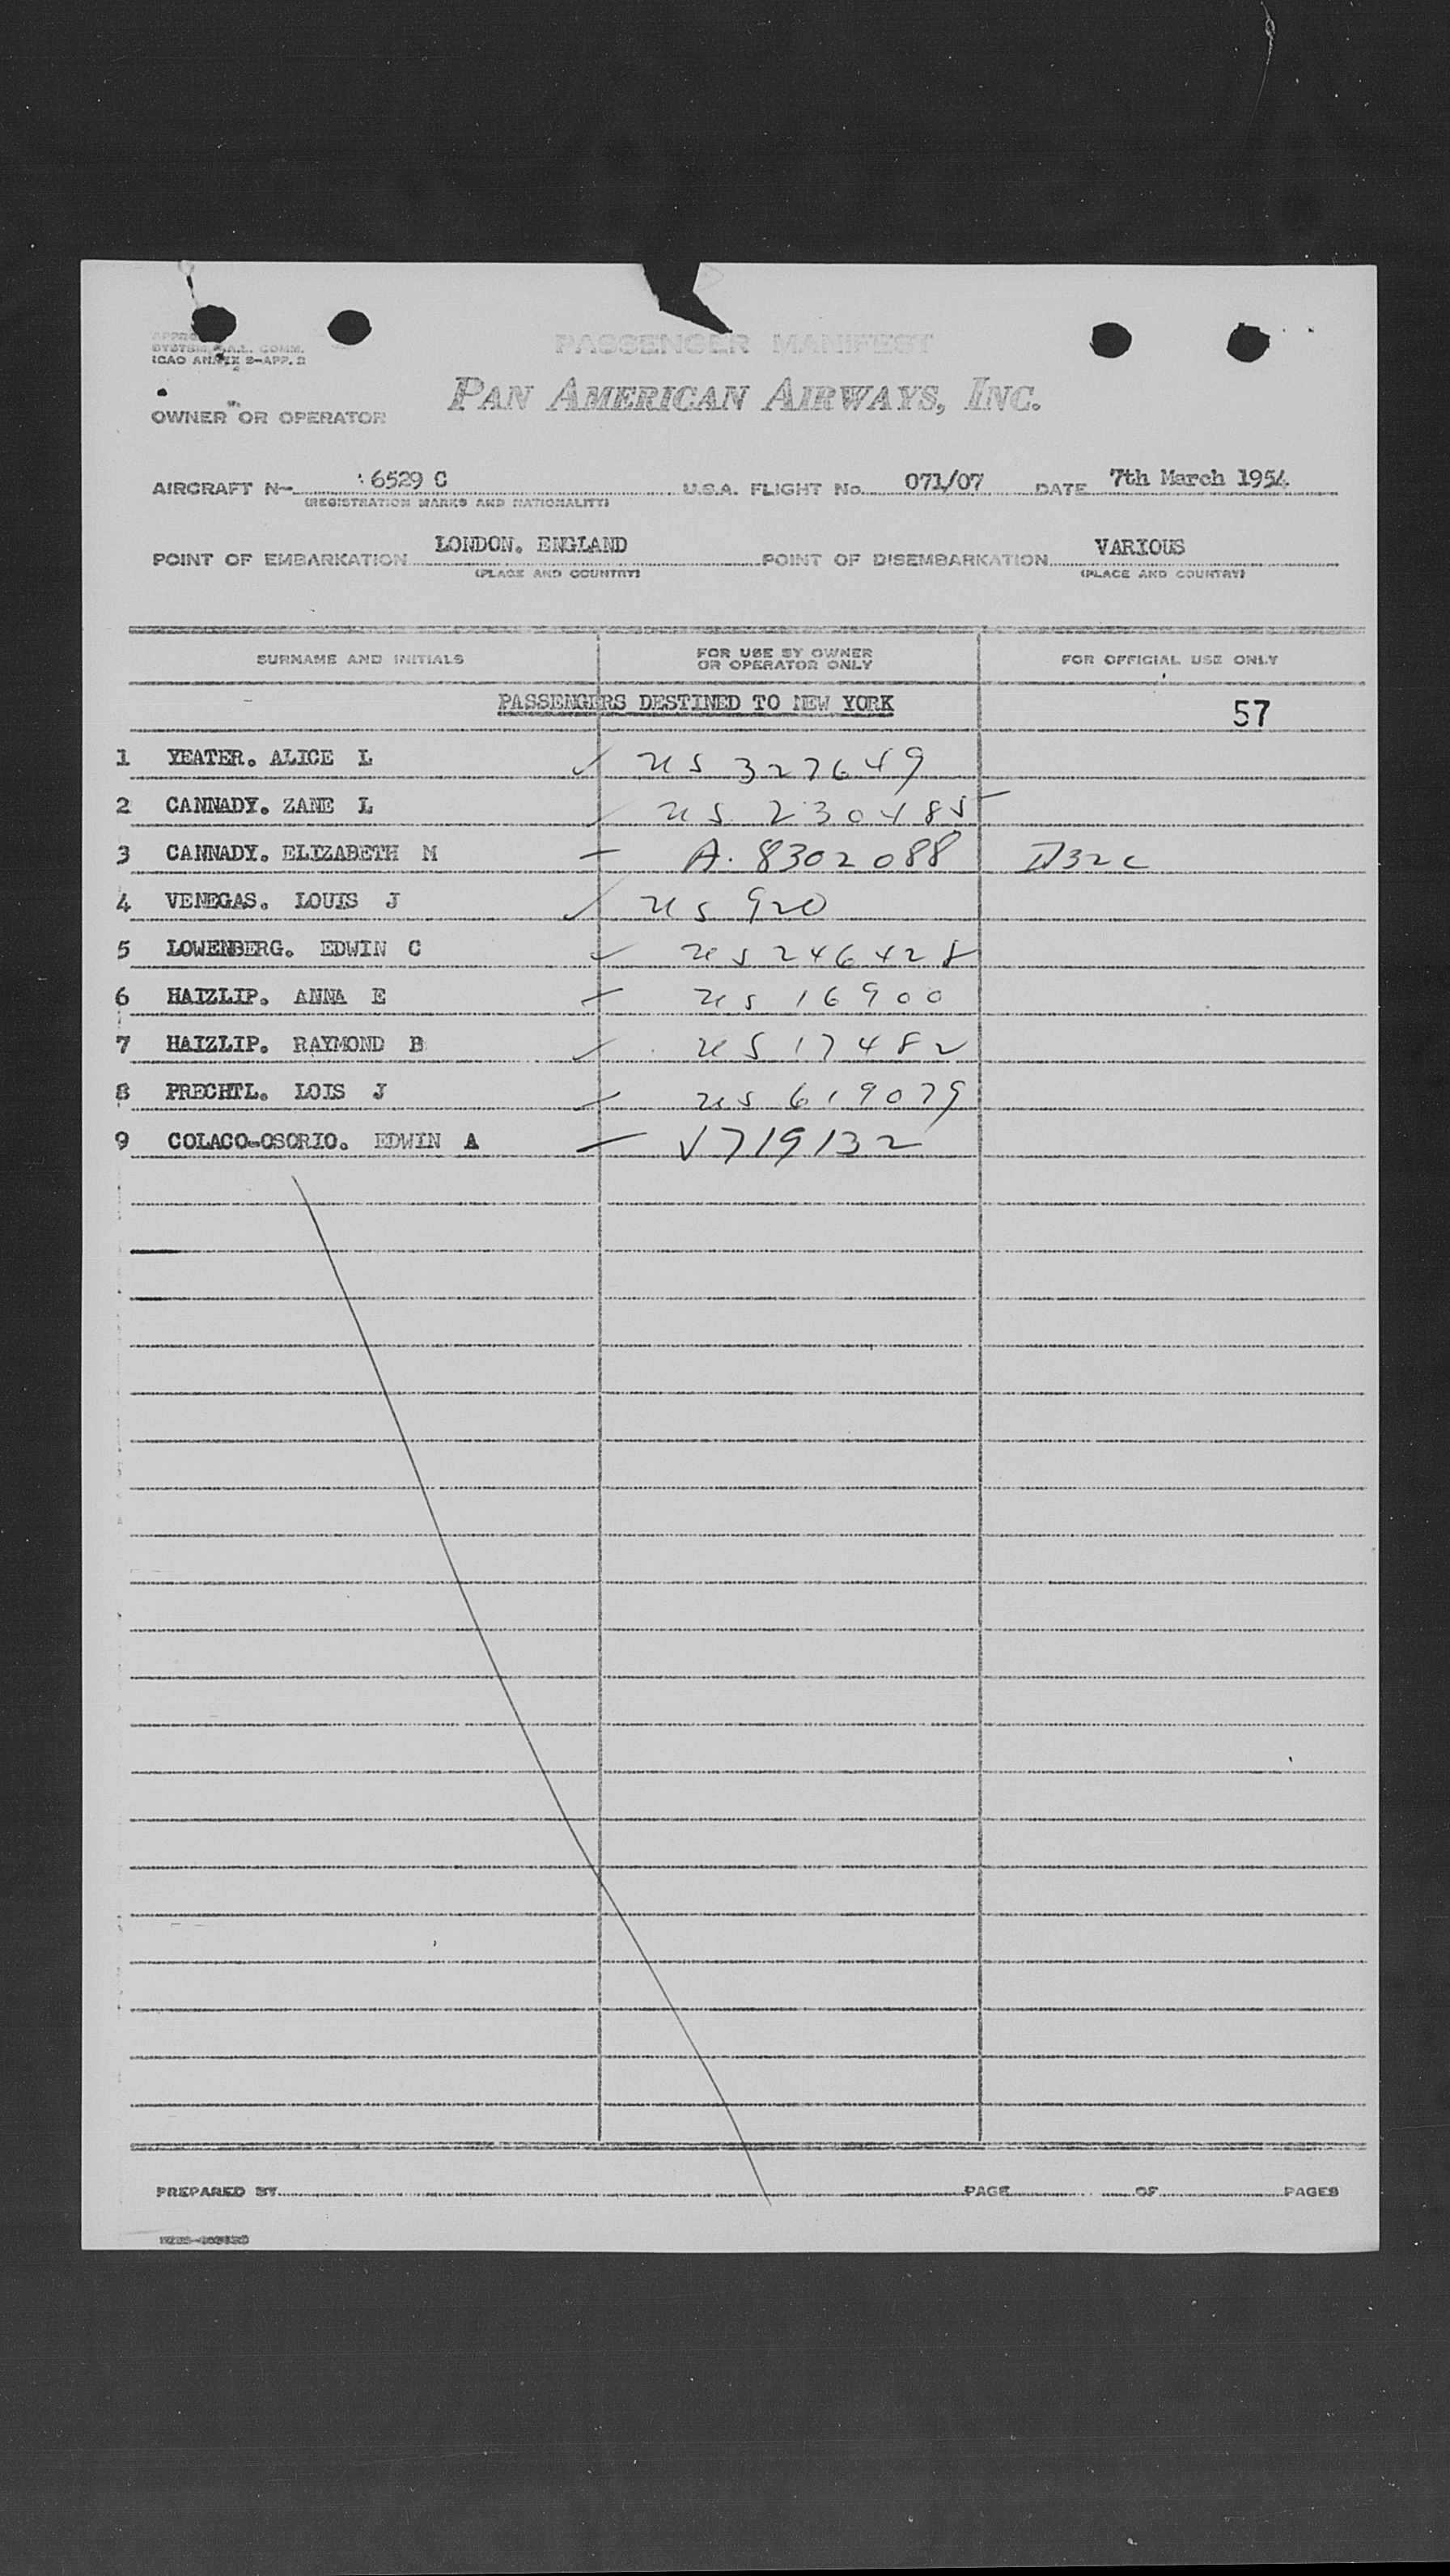 PASSENGER MANIFEST
SYSTEM, A.L. COMM.
ICAO ANNEX 9-APP. 2
PAN AMERICAN AIRWAYS, INC.
OWNER OR OPERATOR
AIRCRAFT N- 6529 C U.S.A. FLIGHT No. 071/07 DATE 7th March 1954
(REGISTRATION MARKS AND NATIONALITY)
POINT OF EMBARKATION LONDON. ENGLAND POINT OF DISEMBARKATION VARIOUS
(PLACE AND COUNTRY) (PLACE AND COUNTRY)
SURNAME AND INITIALS FOR USE BY OWNER OR OPERATOR ONLY FOR OFFICIAL USE ONLY
PASSENGERS DESTINED TO NEW YORK 57
1 YEATER. ALICE L ✓ US 327649
2 CANNADY. ZANE L ✓ US 230485
3 CANNADY. ELIZABETH M – A. 8302088 D32C
4 VENEGAS. LOUIS J ✓ US 920
5 LOWENBERG. EDWIN C ✓ US 246428
6 HAIZLIP. ANNA E ✓ US 16900
7 HAIZLIP. RAYMOND B ✓ US 17482
8 PRECHTL. LOIS J ✓ US 619079
9 COLACO-OSORIO. EDWIN A – V719132
PREPARED BY PAGE OF PAGES